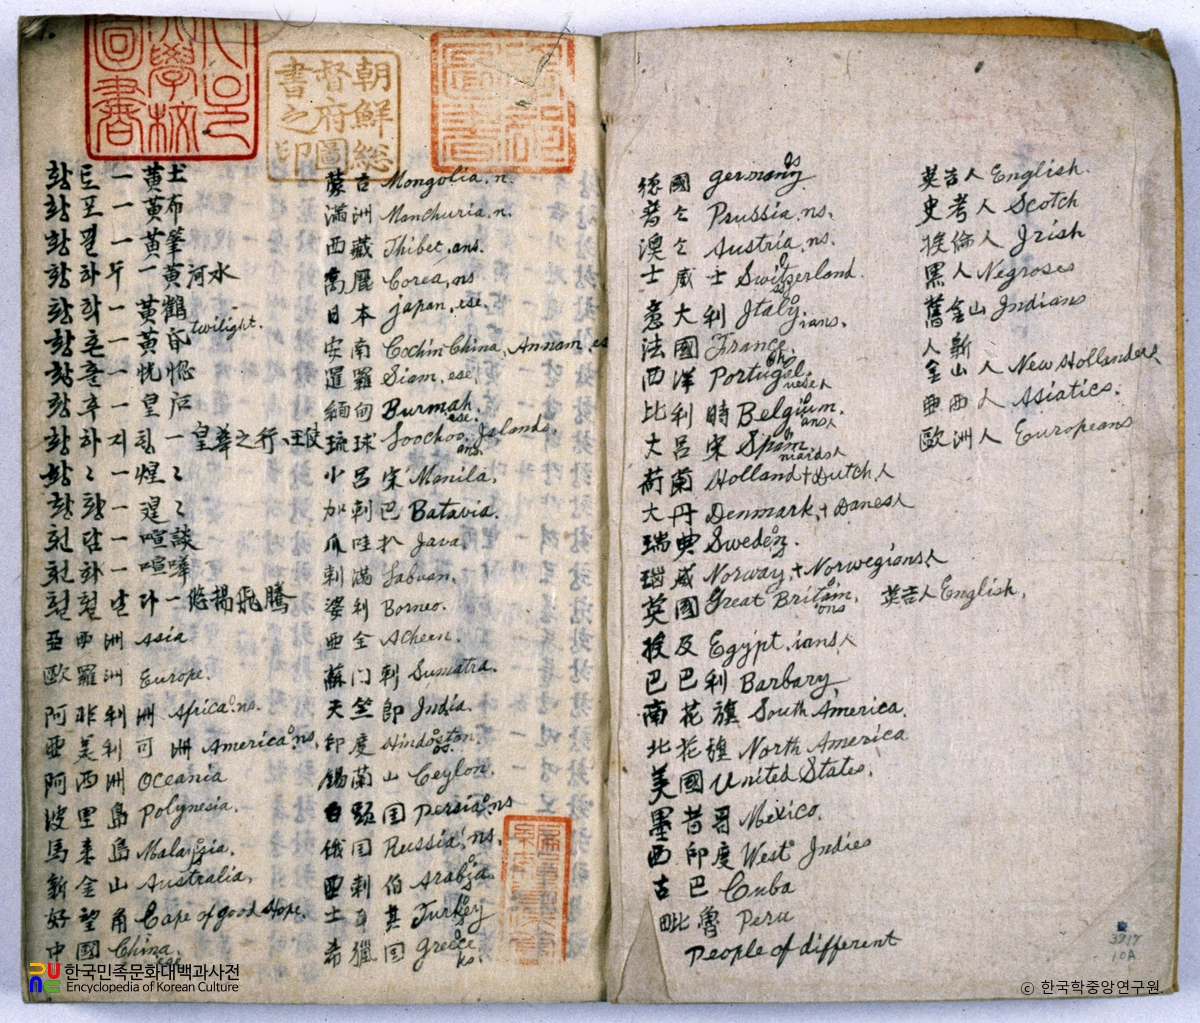 朝鮮總
督府圖
書之印
황토 一 黃土
황포 一 黃布
황필 一 黃筆
황하수 一 黃河水
황학 一 黃鶴
황혼 一 黃昏 twilight.
황홀 一 恍惚
황후 一 皇后
황하지 一 皇華之行、王使
황〻 一 煌〻
황황 一 遑〻
훤담 一 喧談
훤화 一 喧嘩
훨훨날다 一 悠揚飛騰
亞西洲 Asia
歐羅洲 Europe.
阿非利洲 Africa.ns.
亞美利可洲 America.ns.
阿西洲 Oceania
波里島 Polynesia.
馬来島 Malaysia.
新金山 Australia.
好望角 Cape of good Hope.
中國 China. ese
蒙古 Mongolia.n.
滿洲 Manchuria.n.
西藏 Thibet.ans.
高麗 Corea,ns
日本 japan,ese.
安南 Cochin China, Annam,es
暹羅 Siam,ese.
緬甸 Burmah. ese.
琉球 Loochoo Islands. ans
小呂宋 Manila.
加剌巴 Batavia.
爪哇 Java.
剌滿 Labuan.
婆利 Borneo.
亞全 Acheen.
蘇门剌 Sumatra.
天竺 即 India.
印度 Hindostan. os.
錫蘭山 Ceylon.
白頭国 Persia.ns
俄国 Russia.ns.
亞剌伯 Arabia. s
土耳其 Turkey
希獵国 Greece ks.
德國 germany. s
普仝 Prussia,ns.
澳仝 Austria,ns.
士威士 Switzerland.
意大利 Italy. ians.
法國 France.
西洋 Portugal. uese人
比利時 Belgium. ans人
大呂宋 Spain niards人
荷蘭 Holland + Dutch人
大丹 Denmark, + Danes人
瑞典 Sweden.
瑙威 Norway, + Norwegians人
英國 Great Britain. ons 英吉人 English.
挨及 Egypt.ians人
巴巴利 Barbary,
南花旗 South America.
北花旗 North America
美國 United States.
墨昔哥 Mexico.
西印度 West Indies
古巴 Cuba
毗魯 Peru
People of different
英吉人 English.
史考人 Scotch
挨倫人 Irish
黑人 Negroses
舊金山 Indians
人新
金山人 New Hollanders人
亞西人 Asiatics.
歐洲人 Europeans
3717
10A
한국민족문화대백과사전
Encyclopedia of Korean Culture
ⓒ 한국학중앙연구원.